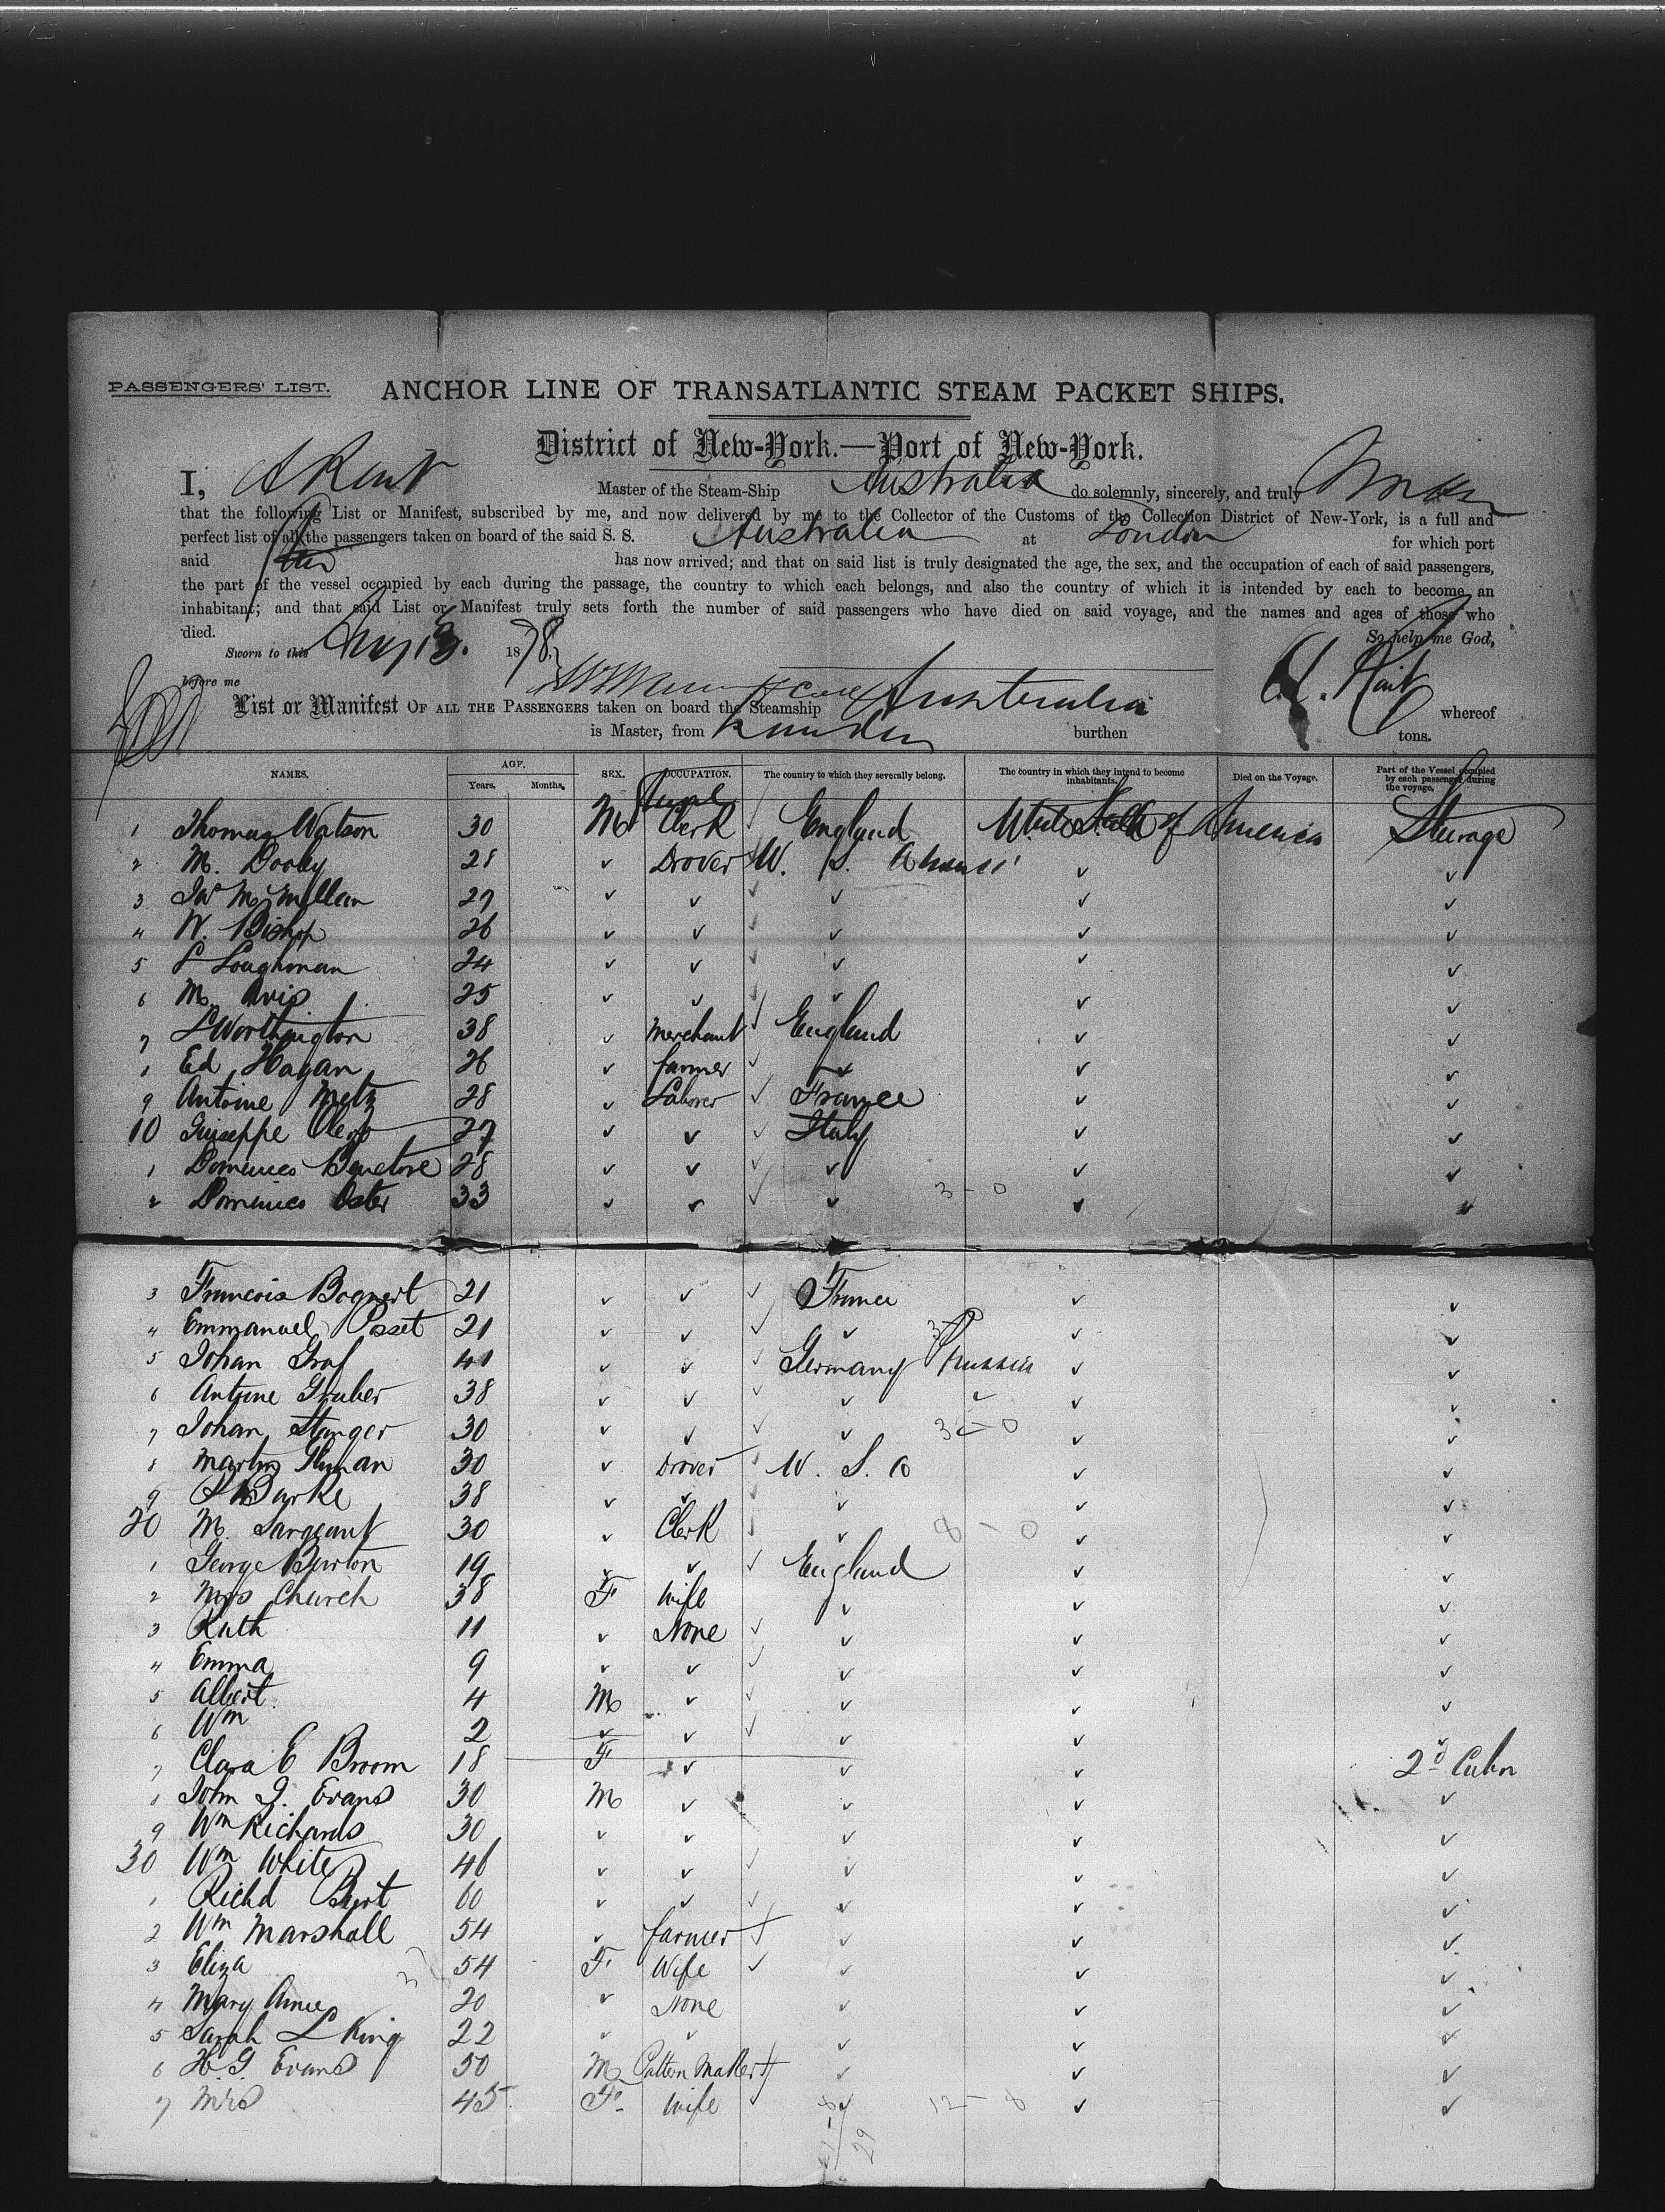 PASSENGERS' LIST.
ANCHOR LINE OF TRANSATLANTIC STEAM PACKET SHIPS.
District of New-York.—Port of New-York.
I, Master of the Steam-Ship Australia do solemnly, sincerely, and truly
that the following List or Manifest, subscribed by me, and now delivered by me to the Collector of the Customs of the Collection District of New-York, is a full and
perfect list of all the passengers taken on board of the said S. S. Australia at London for which port
said has now arrived; and that on said list is truly designated the age, the sex, and the occupation of each of said passengers,
the part of the vessel occupied by each during the passage, the country to which each belongs, and also the country of which it is intended by each to become an
inhabitant; and that said List or Manifest truly sets forth the number of said passengers who have died on said voyage, and the names and ages of those who
died.
So help me God,
Sworn to this 1878
before me
List or Manifest OF ALL THE PASSENGERS taken on board the Steamship Australia whereof
is Master, from London burthen tons.
NAMES. AGE. Years. Months. SEX. OCCUPATION. The country to which they severally belong. The country in which they intend to become inhabitants. Died on the Voyage. Part of the Vessel occupied by each passenger during the voyage.
1 Thomas Watson 30 M Clerk ✓ England United States of America Steerage
2 M. 28 ✓ Drover ✓ ✓
3 Jas McMillan 27 ✓ ✓ ✓ ✓ ✓ ✓
4 W. Bishop 26 ✓ ✓ ✓ ✓ ✓ ✓
5 Loughman 24 ✓ ✓ ✓ ✓ ✓ ✓
6 M. 25 ✓ ✓ ✓ ✓ ✓
7 Worthington 38 ✓ Merchant ✓ England ✓ ✓
8 Ed Hagan 26 ✓ farmer ✓ ✓ ✓ ✓
9 Antoine Metz 28 ✓ Laborer ✓ France ✓ ✓
10 Guiseppe 27 ✓ ✓ ✓ Italy ✓ ✓
1 Domenico 28 ✓ ✓ ✓ ✓ ✓ ✓
2 Domenico Oster 33 ✓ ✓ ✓ ✓ 3-0 ✓ ✓
3 Francois Bognert 21 ✓ ✓ ✓ France ✓ ✓
4 Emmanuel Posset 21 ✓ ✓ ✓ ✓ ✓ ✓
5 Johan Graf 41 ✓ ✓ ✓ Germany Prussia ✓ ✓
6 Antoine Gruber 38 ✓ ✓ ✓ ✓ ✓ ✓ ✓
7 Johan Stanger 30 ✓ ✓ ✓ ✓ 3-0 ✓ ✓
8 Martin 30 ✓ Drover U. S. A ✓ ✓
9 Burke 38 ✓ ✓ ✓ ✓ ✓
20 M. Sargeant 30 ✓ Clerk ✓ 8-0 ✓ ✓
1 George Burton 19 ✓ ✓ ✓ England ✓ ✓
2 Mrs Church 38 F Wife ✓ ✓ ✓
3 Ruth 11 ✓ None ✓ ✓ ✓ ✓
4 Emma 9 ✓ ✓ ✓ ✓ ✓ ✓
5 Albert 4 M ✓ ✓ ✓ ✓ ✓
6 Wm 2 ✓ ✓ ✓ ✓ ✓ ✓
7 Clara E Broom 18 F ✓ ✓ ✓ 2d Cabn
8 John J. Evans 30 M ✓ ✓ ✓ ✓
9 Wm Richards 30 ✓ ✓ ✓ ✓ ✓
30 Wm White 46 ✓ ✓ ✓ ✓ ✓ ✓
1 Richd 60 ✓ ✓ ✓ ✓ ✓ ✓
2 Wm Marshall 54 ✓ farmer ✓ ✓ ✓ ✓
3 Eliza 54 F Wife ✓ ✓ ✓ ✓
4 Mary 20 ✓ None ✓ ✓ ✓
5 Sarah L King 22 ✓ ✓ ✓ ✓ ✓
6 H. G. Evans 50 M Pattern Maker ✓ ✓ ✓
7 Mrs 45 F Wife ✓ ✓ 12-8 ✓ ✓